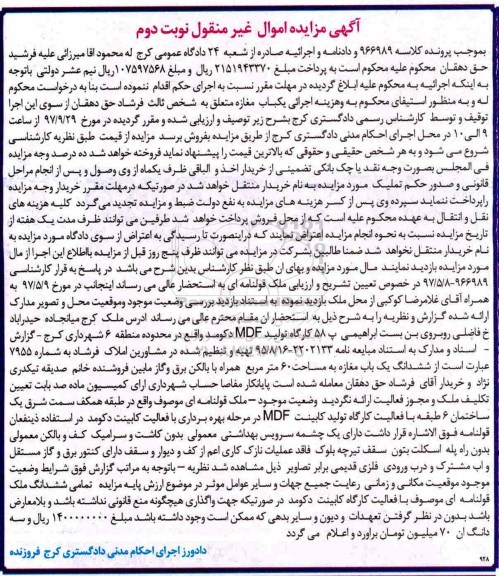 آگهی مزایده اموال غیر منقول نوبت دوم
بموجب پرونده کلاسه ۹۶۶۹۸۹ و دادنامه و اجرائیه صادره از شعبه ۲۴ دادگاه عمومی کرج له محمود اقا میرزائی علیه فرشید
حق دهقان محکوم علیه محکوم است به پرداخت مبلغ ۲۱۵۱۹۴۳۳۷۰ ریال و مبلغ ۱۰۷۵۹۷۵۶۸ ریال نیم عشر دولتی باتوجه
به اینکه اجرائیه به محکوم علیه ابلاغ گردیده در مهلت مقرر نسبت به اجرای حکم اقدام ننموده است بنا به درخواست محکوم
له و به منظور استیفای محکوم به وهزینه اجرائی یکباب مغازه متعلق به شخص ثالث فرشاد حق دهقان از سوی این اجرا
توقیف و توسط کارشناس رسمی دادگستری کرج بشرح زیر توصیف و ارزیابی شده و مقرر گردیده در مورخ ۹۷/۹/۲۹ از ساعت
۹ الی ۱۰ در محل اجرای احکام مدنی دادگستری کرج از طریق مزایده بفروش برسد مزایده از قیمت طبق نظریه کارشناسی
شروع می شود و به هر شخص حقیقی و حقوقی که بالاترین قیمت را پیشنهاد نماید فروخته خواهد شد ده درصد وجه مزایده
فی المجلس بصورت وجه نقد یا چک بانکی تضمینی از خریدار اخذ و الباقی ظرف یکماه از وی وصول و پس از انجام مراحل
قانونی و صدور حکم تملیک مورد مزایده به نام خریدار منتقل خواهد شد در صورتیکه درمهلت مقرر خریدار وجه مزایده
راپرداخت ننماید سپرده وی پس از کسر هزینه های مزایده به نفع دولت ضبط و مزایده تجدید می گردد کلیه هزینه های
نقل و انتقال به عهده محکوم علیه است که از محل فروش پرداخت خواهد شد طرفین می توانند ظرف مدت یک هفته از
تاریخ مزایده نسبت به نحوه انجام مزایده اعتراض نمایند که دراینصورت تا رسیدگی به اعتراض از سوی دادگاه مورد مزایده به
نام خریدار منتقل نخواهد شد ضمنا طالبین شرکت در مزایده می توانند ظرف پنج روز قبل از مزایده بااطلاع این اجرا از مال
مورد مزایده بازدید نمایند مال مورد مزایده و بهای ان طبق نظر کارشناس بدین شرح می باشد در پاسخ به قرار کارشناسی
۹۶۶۹۸۹-۹۷/۵/۸ در خصوص تعیین تشریح و ارزیابی ملک قولنامه ای به استحضار عالی می رساند اینجانب در مورخ ۹۷/۵/۹ به
همراه آقای غلامرضا کوکبی از محل ملک بازدید نموده به استناد بازدید بررسی وضعیت موجود وموقعیت محل و تصویر مدارک
ارائه شده گزارش و نظریه را به شرح ذیل به استحضار ان مقام محترم عالی می رساند ادرس ملک کرج میانجاده حیدراباد
خ فاضلی روبروی بن بست ابراهیمی پ ۵۸ کارگاه تولید MDF دکومد واقع در محدوده منطقه ۶ شهرداری کرج - گزارش
- اسناد و مدارک به استناد مبایعه نامه ۲۲۰۲۱۳۳-۹۵/۸/۱۶ تهیه و تنظیم شده در مشاورین املاک فرشاد به شماره ۷۹۵۵
عبارت است از ششدانگ یک باب مغازه به مساحت ۶۰ متر مربع همراه با بالکن برق وگاز مابین فروشنده خانم صدیقه تیکدری
نژاد و خریدار آقای فرشاد حق دهقان معامله شده است پایانکار مفاصا حساب شهرداری ارای کمیسیون ماده صد بابت تعیین
تکلیف ملک و مجوز فعالیت ارائه نگردید وضعیت موجود – ملک قولنامه ای موصوف واقع در طبقه همکف سمت شرق یک
ساختمان ۶ طبقه با فعالیت کارگاه تولید کابینت MDF در مرحله بهره برداری با فعالیت کابینت دکومد در استفاده ذینفعان
قولنامه فوق الاشاره قرار داشت دارای یک چشمه سرویس بهداشتی معمولی بدون کاشت و سرامیک کف و بالکن معمولی
بدون راه پله اسکلت بتون سقف تیرچه بلوک فاقد عملیات نازک کاری اعم از کف و دیوار و سقف دارای کنتور برق و گاز مستقل
و اب مشترک و درب ورودی فلزی قدیمی برابر تصاویر ذیل مشاهده شد نظریه – باتوجه به مراتب گزارش فوق شرایط وضعیت
موجود موقعیت مکانی و زمانی رعایت جمیع جهات و سایر عوامل موثر در موضوع ارزش پایه مزایده تمامی ششدانگ ملک
قولنامه ای موصوف با فعالیت کارگاه کابینت دکومد در صورتیکه جهت واگذاری هیچگونه منع قانونی نداشته باشد و بلامعارض
باشد بدون در نظر گرفتن تعهدات و دیون و سایر بدهی که ممکن است وجود داشته باشد مبلغ ۱۴۰۰۰۰۰۰۰۰ ریال و سه
دانگ ان ۷۰ میلیون تومان براورد و اعلام می گردد
دادورز اجرای احکام مدنی دادگستری کرج فروزنده
۹۲۸